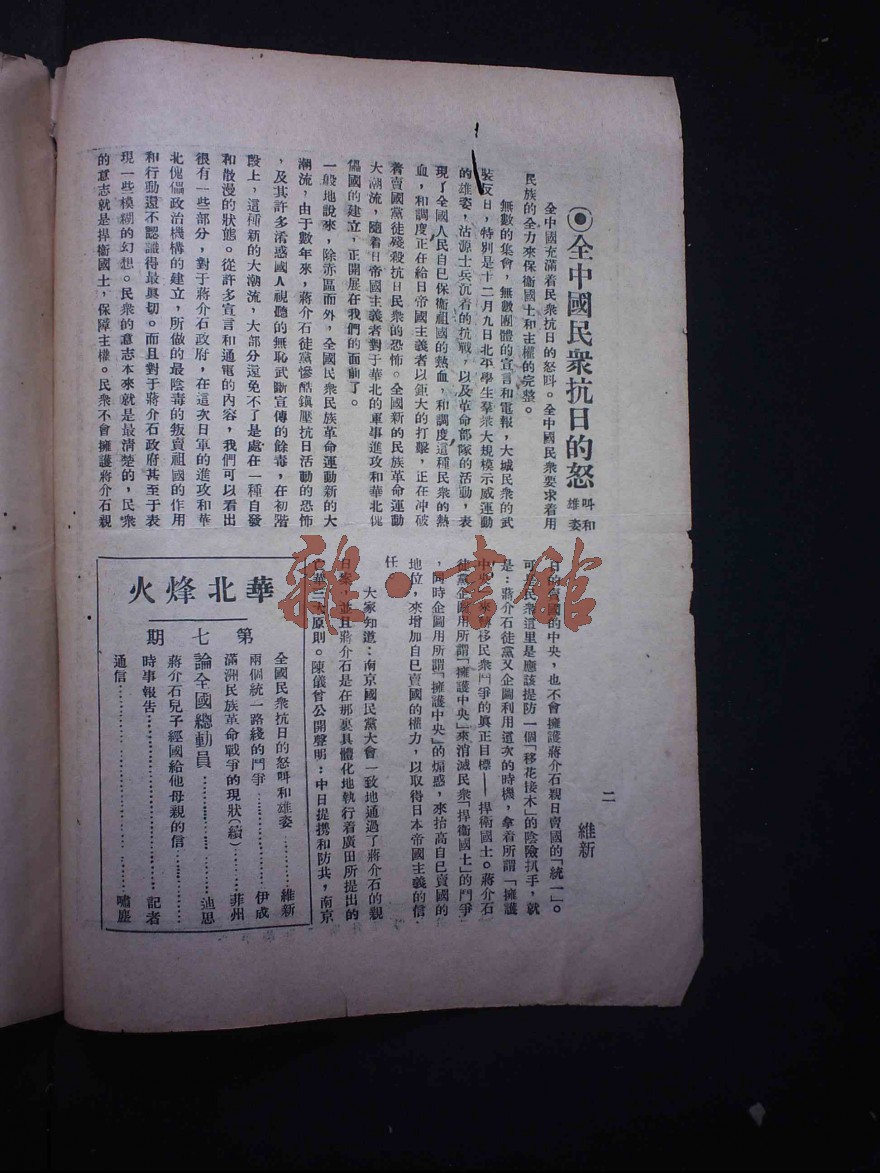 ◉全中國民衆抗日的怒呌和雄姿
二
維新
全中國充滿着民衆抗日的怒呌。全中國民衆要求着用
民族的全力來保衛國土和主權的完整。
無數的集會，無數團體的宣言和電報，大城民衆的武
裝反日，特別是十二月九日北平學生羣衆大規模示威運動
的雄姿，沽源士兵沉着的抗戰，以及革命部隊的活動，表
現了全國人民自己保衛祖國的熱血，和調度這種民衆的熱
血，和調度正在給日帝國主義者以鉅大的打擊，正在冲破
着賣國黨徒殘殺抗日民衆的恐怖。全國新的民族革命運動
大潮流，隨着日帝國主義者對于華北的軍事進攻和華北傀
儡國的建立，正開展在我們的面前了。
一般地說來，除赤區而外，全國民衆民族革命運動新的大
潮流，由于數年來，蔣介石徒黨慘酷鎮壓抗日活動的恐怖
，及其許多淆惑國人視聽的無恥武斷宣傳的餘毒，在初階
段上，這種新的大潮流，大部分還免不了是處在一種自發
和散漫的狀態。從許多宣言和通電的內容，我們可以看出
很有一些部分，對于蔣介石政府，在這次日軍的進攻和華
北傀儡政治機構的建立，所做的最陰毒的叛賣祖國的作用
和行動還不認識得最眞切。而且對于蔣介石政府甚至于表
現一些模糊的幻想。民衆的意志本來就是最清楚的，民衆
的意志就是捍衛國土，保障主權。民衆不會擁護蔣介石親
日的賣國的中央，也不會擁護蔣介石親日賣國的「統一」。
可是民衆這里是應該提防一個「移花接木」的陰險扒手，就
是：蔣介石徒黨又企圖利用這次的時機，拿着所謂「擁護
中央」來轉移民衆鬥爭的眞正目標——捍衛國土。蔣介石
徒黨企圖用所謂「擁護中央」來消滅民衆「捍衛國土」的鬥爭
，同時企圖用所謂「擁護中央」的煽惑，來抬高自己賣國的
地位，來增加自己賣國的權力，以取得日本帝國主義的信
任
大家知道：南京國民黨大會一致地通過了蔣介石的親
日案，並且蔣介石是在那裏具體化地執行着廣田所提出的
對華三大原則。陳儀曾公開聲明：中日提携和防共，南京
華北烽火
第七期
全國民衆抗日的怒呌和雄姿………維新
兩個統一路綫的鬥爭………………伊成
滿洲民族革命戰爭的現狀(續)……菲州
論全國總動員………………………迪思
蔣介石兒子經國給他母親的信………
時事報告……………………………記者
通信…………………………………嘯塵
雜·書館